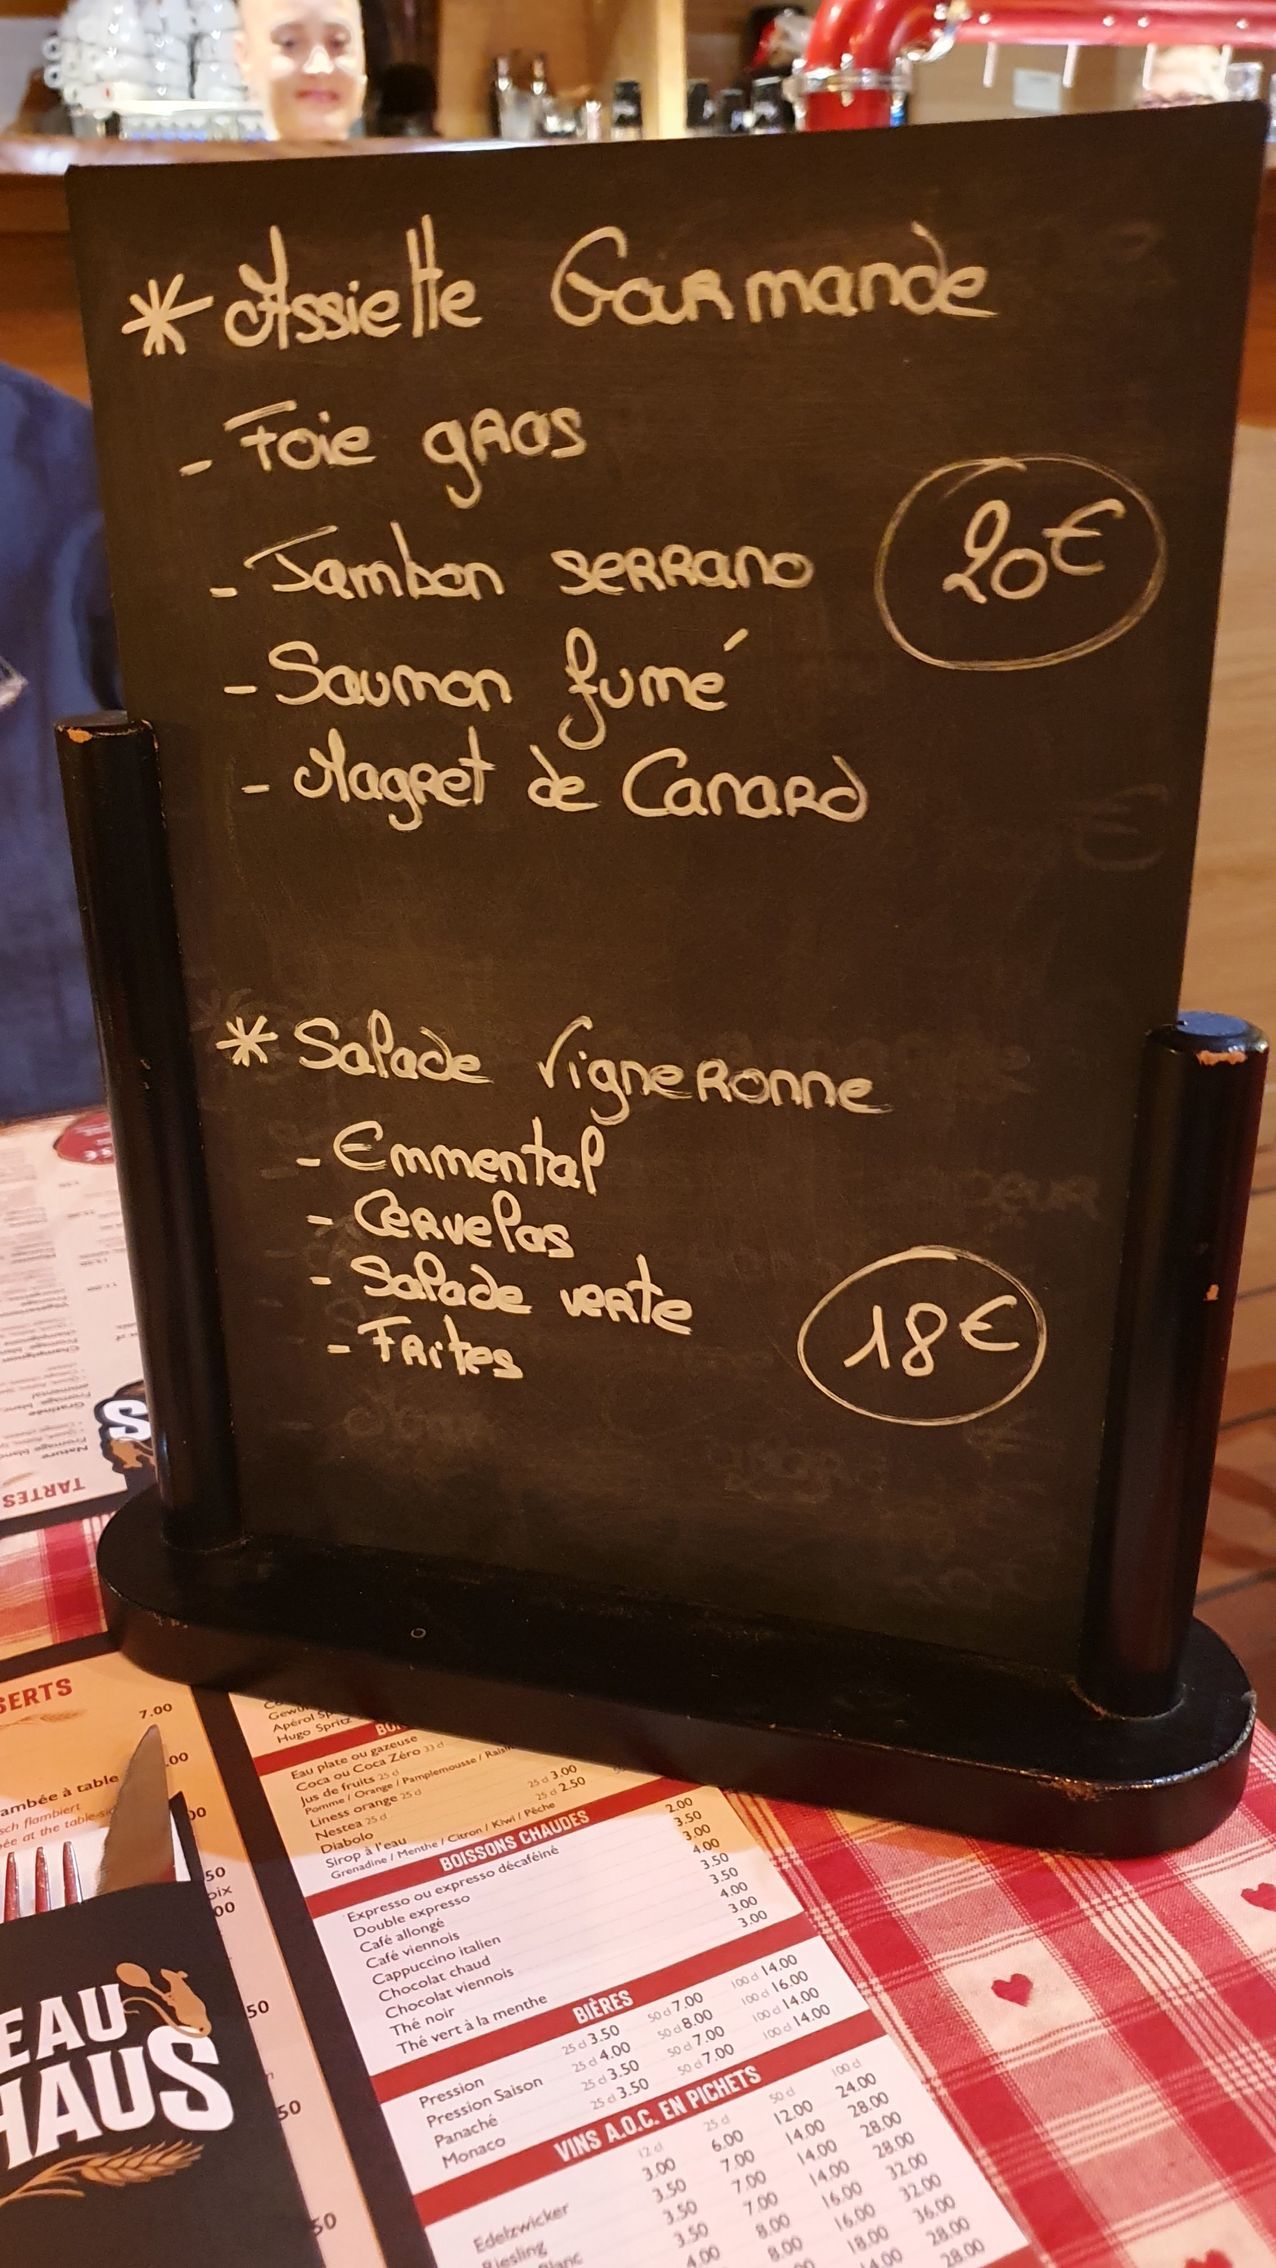 * Assiette Gourmande
- Foie gras
- Jambon serrano
20€
- Saumon fumé
- Magret de Canard
* Salade Vigneronne
- Emmental
- Cervelas
- Salade verte
- Frites
18€
TARTES
SERTS
7.00
ambée à table
sch flambiert
ée at the table
EAU
HAUS
Apérol
Hugo Spritz
Eau plate ou gazeuse
Coca ou Coca Zéro 33 cl
Jus de fruits 25 cl
Pomme / Orange / Pamplemousse / Raisin
Liness orange 25 cl
Nestea 25 cl
Diabolo 25 cl 3.00
Sirop à l'eau 25 cl 2.50
Grenadine / Menthe / Citron / Kiwi / Pêche
BOISSONS CHAUDES
Expresso ou expresso décaféiné 2.00
Double expresso 3.50
Café allongé 3.00
Café viennois 4.00
Cappuccino italien 3.50
Chocolat chaud 3.50
Chocolat viennois 4.00
Thé noir 3.00
Thé vert à la menthe 3.00
BIÈRES
Pression 25 cl 3.50 50 cl 7.00 100 cl 14.00
Pression Saison 25 cl 4.00 50 cl 8.00 100 cl 16.00
Panaché 25 cl 3.50 50 cl 7.00 100 cl 14.00
Monaco 25 cl 3.50 50 cl 7.00 100 cl 14.00
VINS A.O.C. EN PICHETS
12 cl 25 cl 50 cl 100 cl
Edelzwicker 3.00 6.00 12.00 24.00
Riesling 3.50 7.00 14.00 28.00
Blanc 3.50 7.00 14.00 28.00
3.50 7.00 14.00 28.00
4.00 8.00 16.00 32.00
8.00 16.00 32.00
18.00 36.00
14.00 28.00